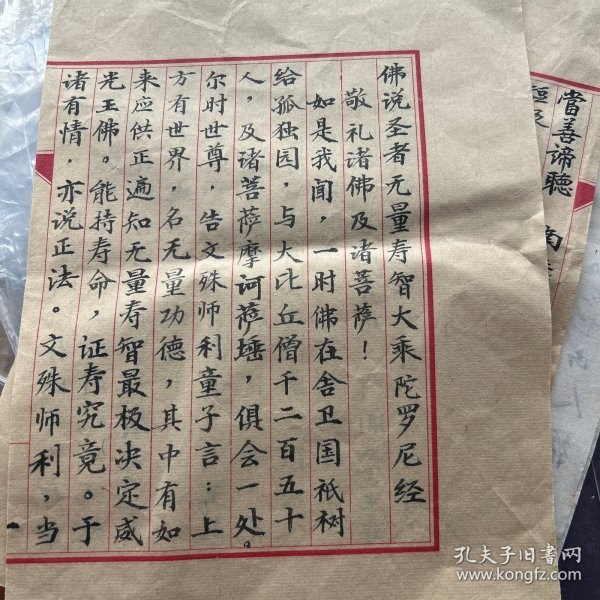 佛说圣者无量寿智大乘陀罗尼经
敬礼诸佛及诸菩萨！
如是我闻，一时佛在舍卫国祇树
给孤独园，与大比丘僧千二百五十
人，及诸菩萨摩诃萨埵，俱会一处。
尔时世尊，告文殊师利童子言：上
方有世界，名无量功德，其中有如
来应供正遍知无量寿智最极决定威
光王佛。能持寿命，证寿究竟。于
诸有情，亦说正法。文殊师利，当
當善諦聽
孔夫子旧书网
www.kongfz.com